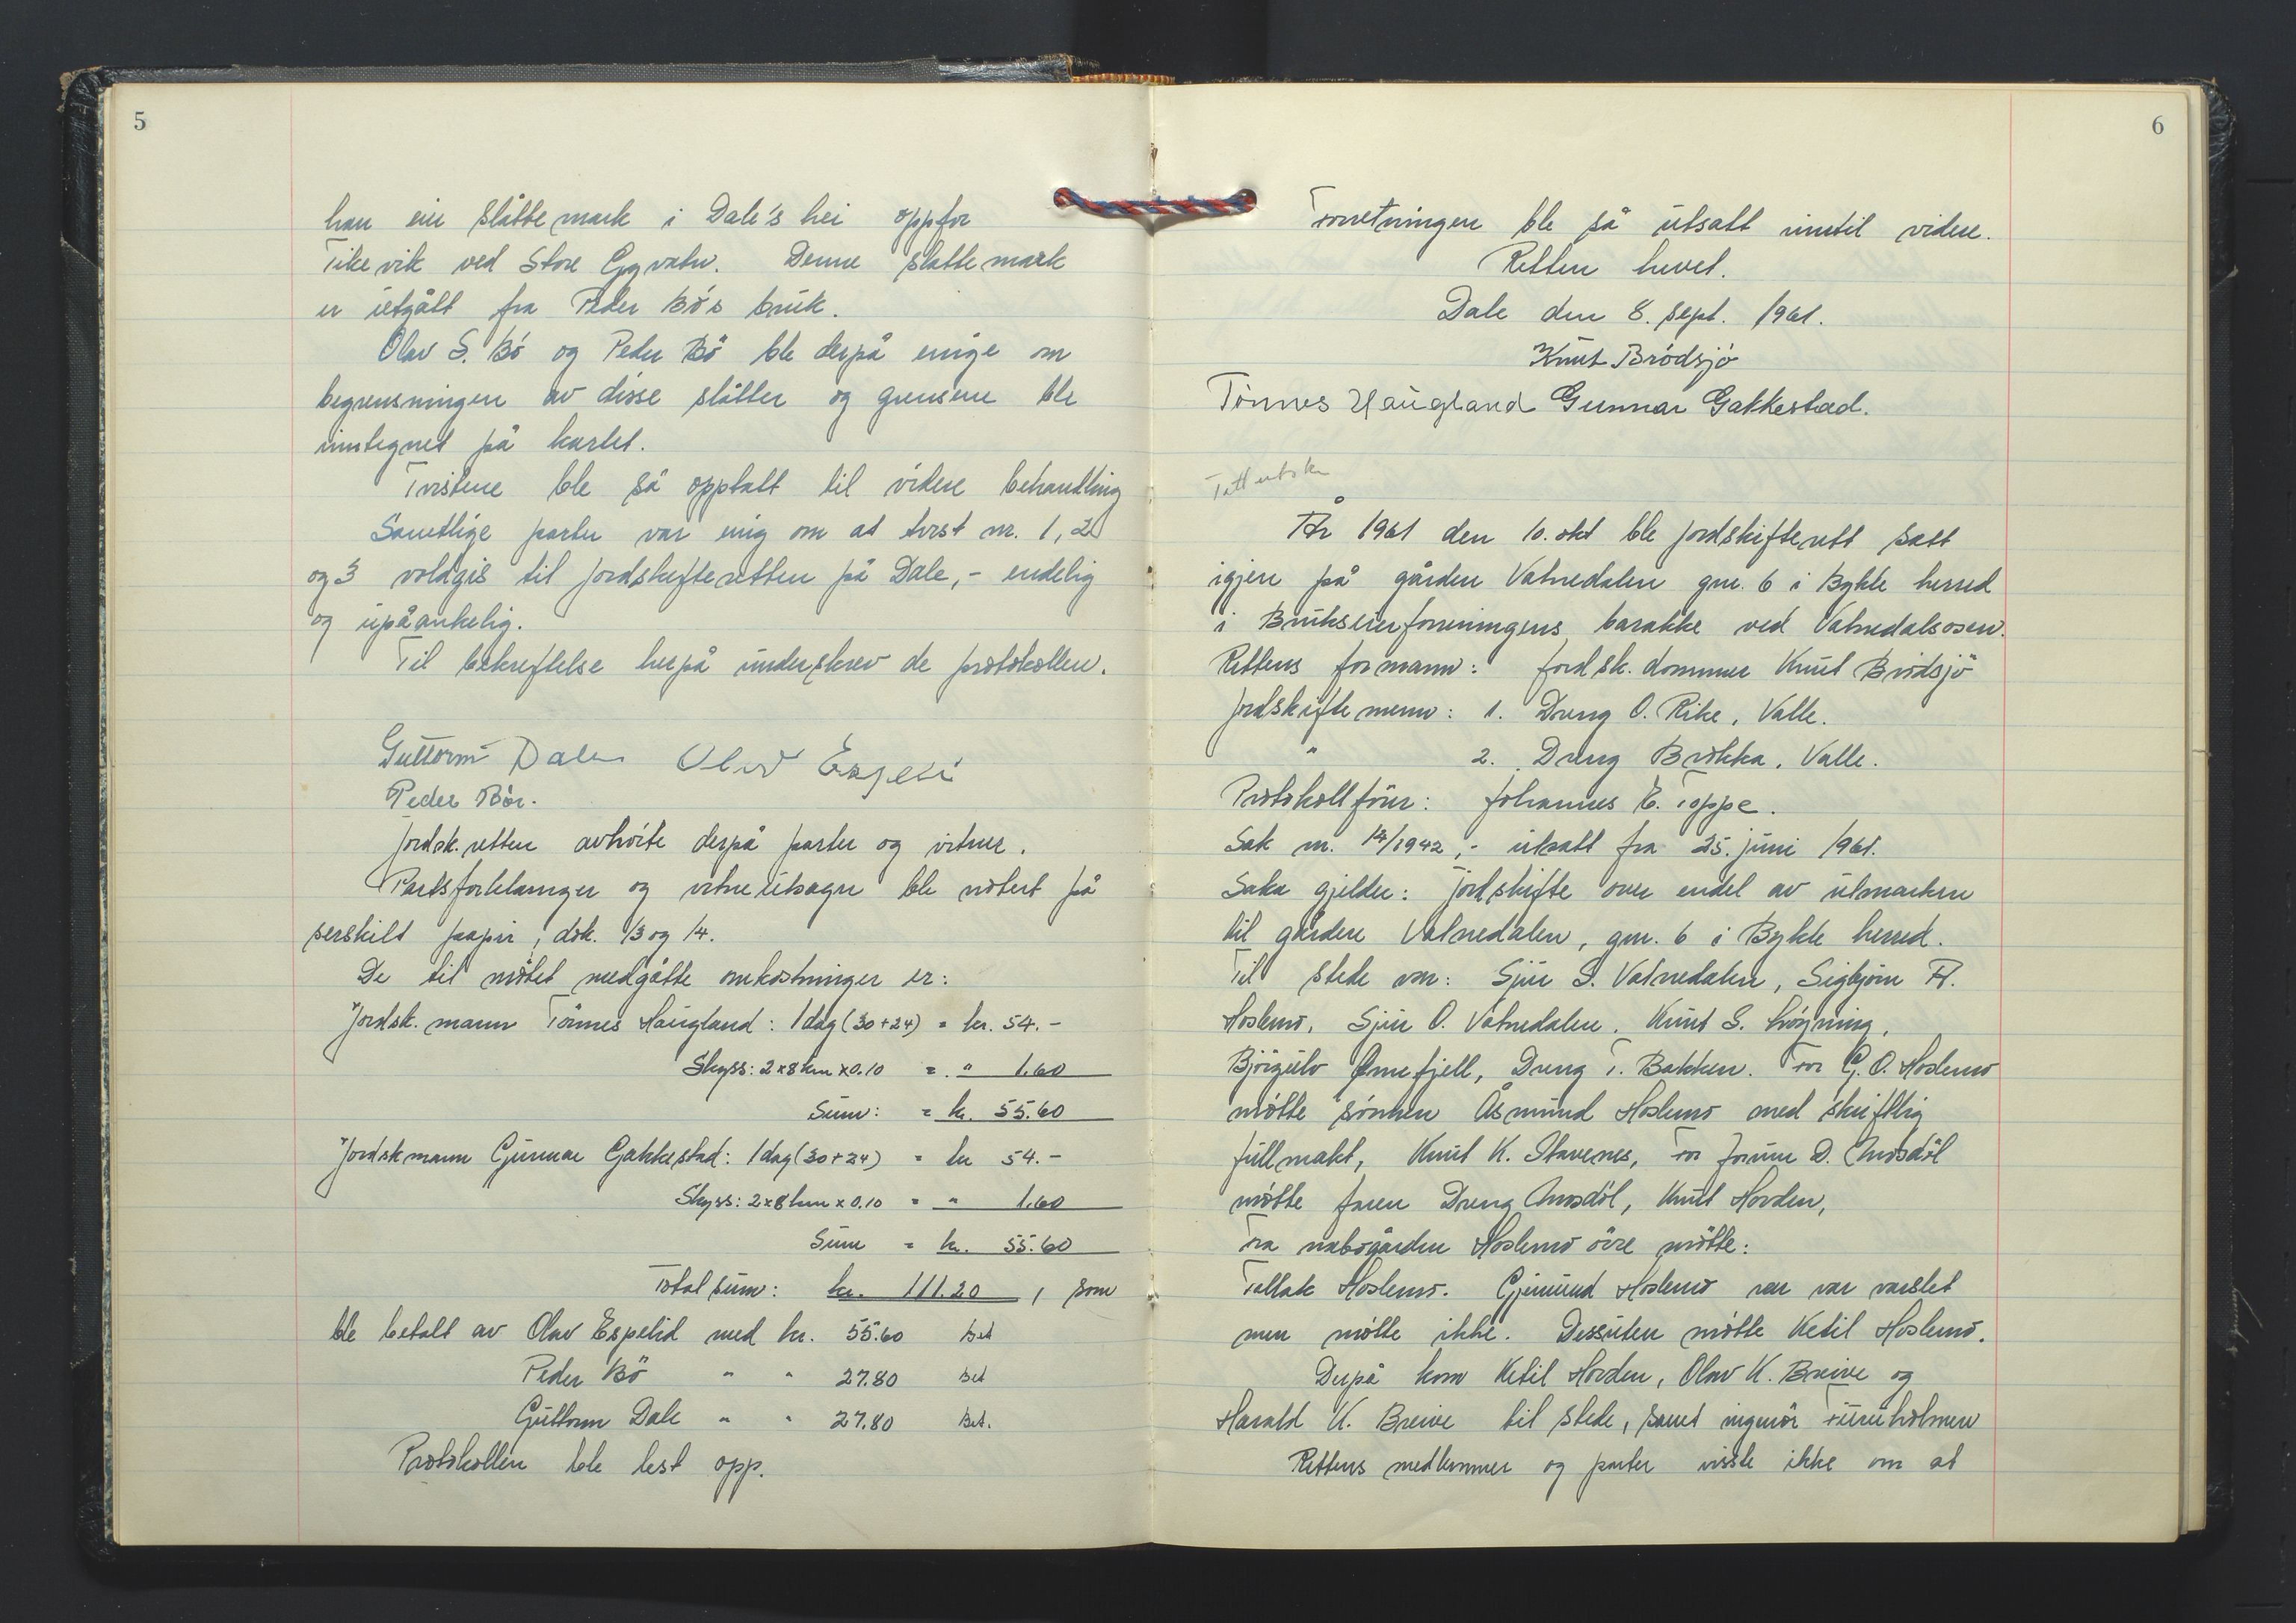 5
han ein slåttemark i Dale's hei oppfor
ved Store Denne slåttemark
er utgått fra Peder Bö's bruk.
Olav S. Bö og Peder Bö ble derpå enige om
begrensningen av disse slåtter og grensene ble
inntegnet på kartet.
Tvistene ble så opptatt til videre behandling
Samtlige parter var enig om at tvist nr. 1, 2
og 3 voldgis til jordskifteretten på Dale, - endelig
og upåankelig.
Til bekreftelse herpå underskrev de protokollen.
Guttorm Dale Olav
Peder Bö.
Jordsk.retten avhörte derpå parter og vitner.
Partsforklaringer og vitneutsagn ble notert på
serskilt papir, dok. 13 og 14.
De til mötet medgåtte omkostninger er:
Jordsk.mann Tönnes Haugland: 1 dag (30+24) = kr. 54.-
Skyss: 2x8 km x 0.10 = " 1.60
Sum: = kr. 55.60
Jordskmann Gunnar Gakkestad: 1 dag (30+24) = kr 54.-
Skyss: 2x8 km x 0.10 = " 1.60
Sum = kr. 55.60
Total sum: kr. 111.20, som
ble betalt av Olav Espelid med kr. 55.60 Bet
Peder Bö " " 27.80 Bet
Guttorm Dale " " 27.80 Bet.
Protokollen ble lest opp.
6
Forretningen ble så utsatt inntil videre.
Retten hevet.
Dale den 8. sept. 1961.
Knut Brödsjö
Tönnes Haugland Gunnar Gakkestad.
Tatt
År 1961 den 10. okt ble jordskifterett satt
igjen på gården Vatnedalen gnr. 6 i Bykle herred
i Brukseierforeningens barakke ved Vatnedalsosen.
Rettens formann: Jordsk.dommer Knut Brödsjö
Jordskiftemenn: 1. Dreng O. Rike, Valle.
" 2. Dreng Brokka, Valle.
Protokollförer: Johannes E. Toppe.
Sak nr. 12/1942, - utsatt fra 25. juni 1961.
Saka gjelder: Jordskifte over endel av utmarken
til gården Vatnedalen, gnr. 6 i Bykle herred.
Til stede var: Sjur S. Vatnedalen, Sigbjörn A.
Hoslemo, Sjur O. Vatnedalen, Knut S. Lögning,
Björgulv Ørnefjell, Dreng T. Bakken. For G. O. Hoslemo
mötte sönnen Åsmund Hoslemo med skriftlig
fullmakt, Knut K. Stavenes, For Jorunn D. Mosdöl
mötte faren Dreng Mosdöl, Knut Hovden,
Fra nabogården Hoslemo övre mötte:
Tallak Hoslemo. Gjermund Hoslemo var var varslet
men mötte ikke. Dessuten mötte Ketil Hoslemo.
Derpå kom Ketil Hovden, Olav K. Breive og
Harald K. Breive til stede, samt ingeniör Furuholmen
Rettens medlemmer og parter visste ikke om at